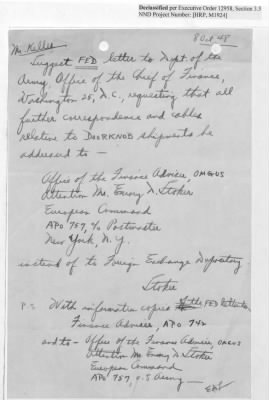 Declassified per Executive Order 12958, Section 3.5
NND Project Number: [HRP, M1924]
8 Oct 48
Mr. Keller
Suggest FED letter to Dept of the
Army, Office of the Chief of Finance,
Washington 25, D.C., requesting that all
further correspondence and cables
relative to DOORKNOB shipments be
addressed to —
Office of the Finance Adviser, OMGUS
Attention Mr. Emory D. Stoker
European Command
APO 757, c/o Postmaster
New York, N.Y.
instead of to Foreign Exchange Depository.
Stoker
P.S. With information copies of the FED letter to
Finance Adviser, APO 742
and to - Office of the Finance Adviser, OMGUS
Attention Mr. Emory D. Stoker
European Command
APO 757, U.S. Army —